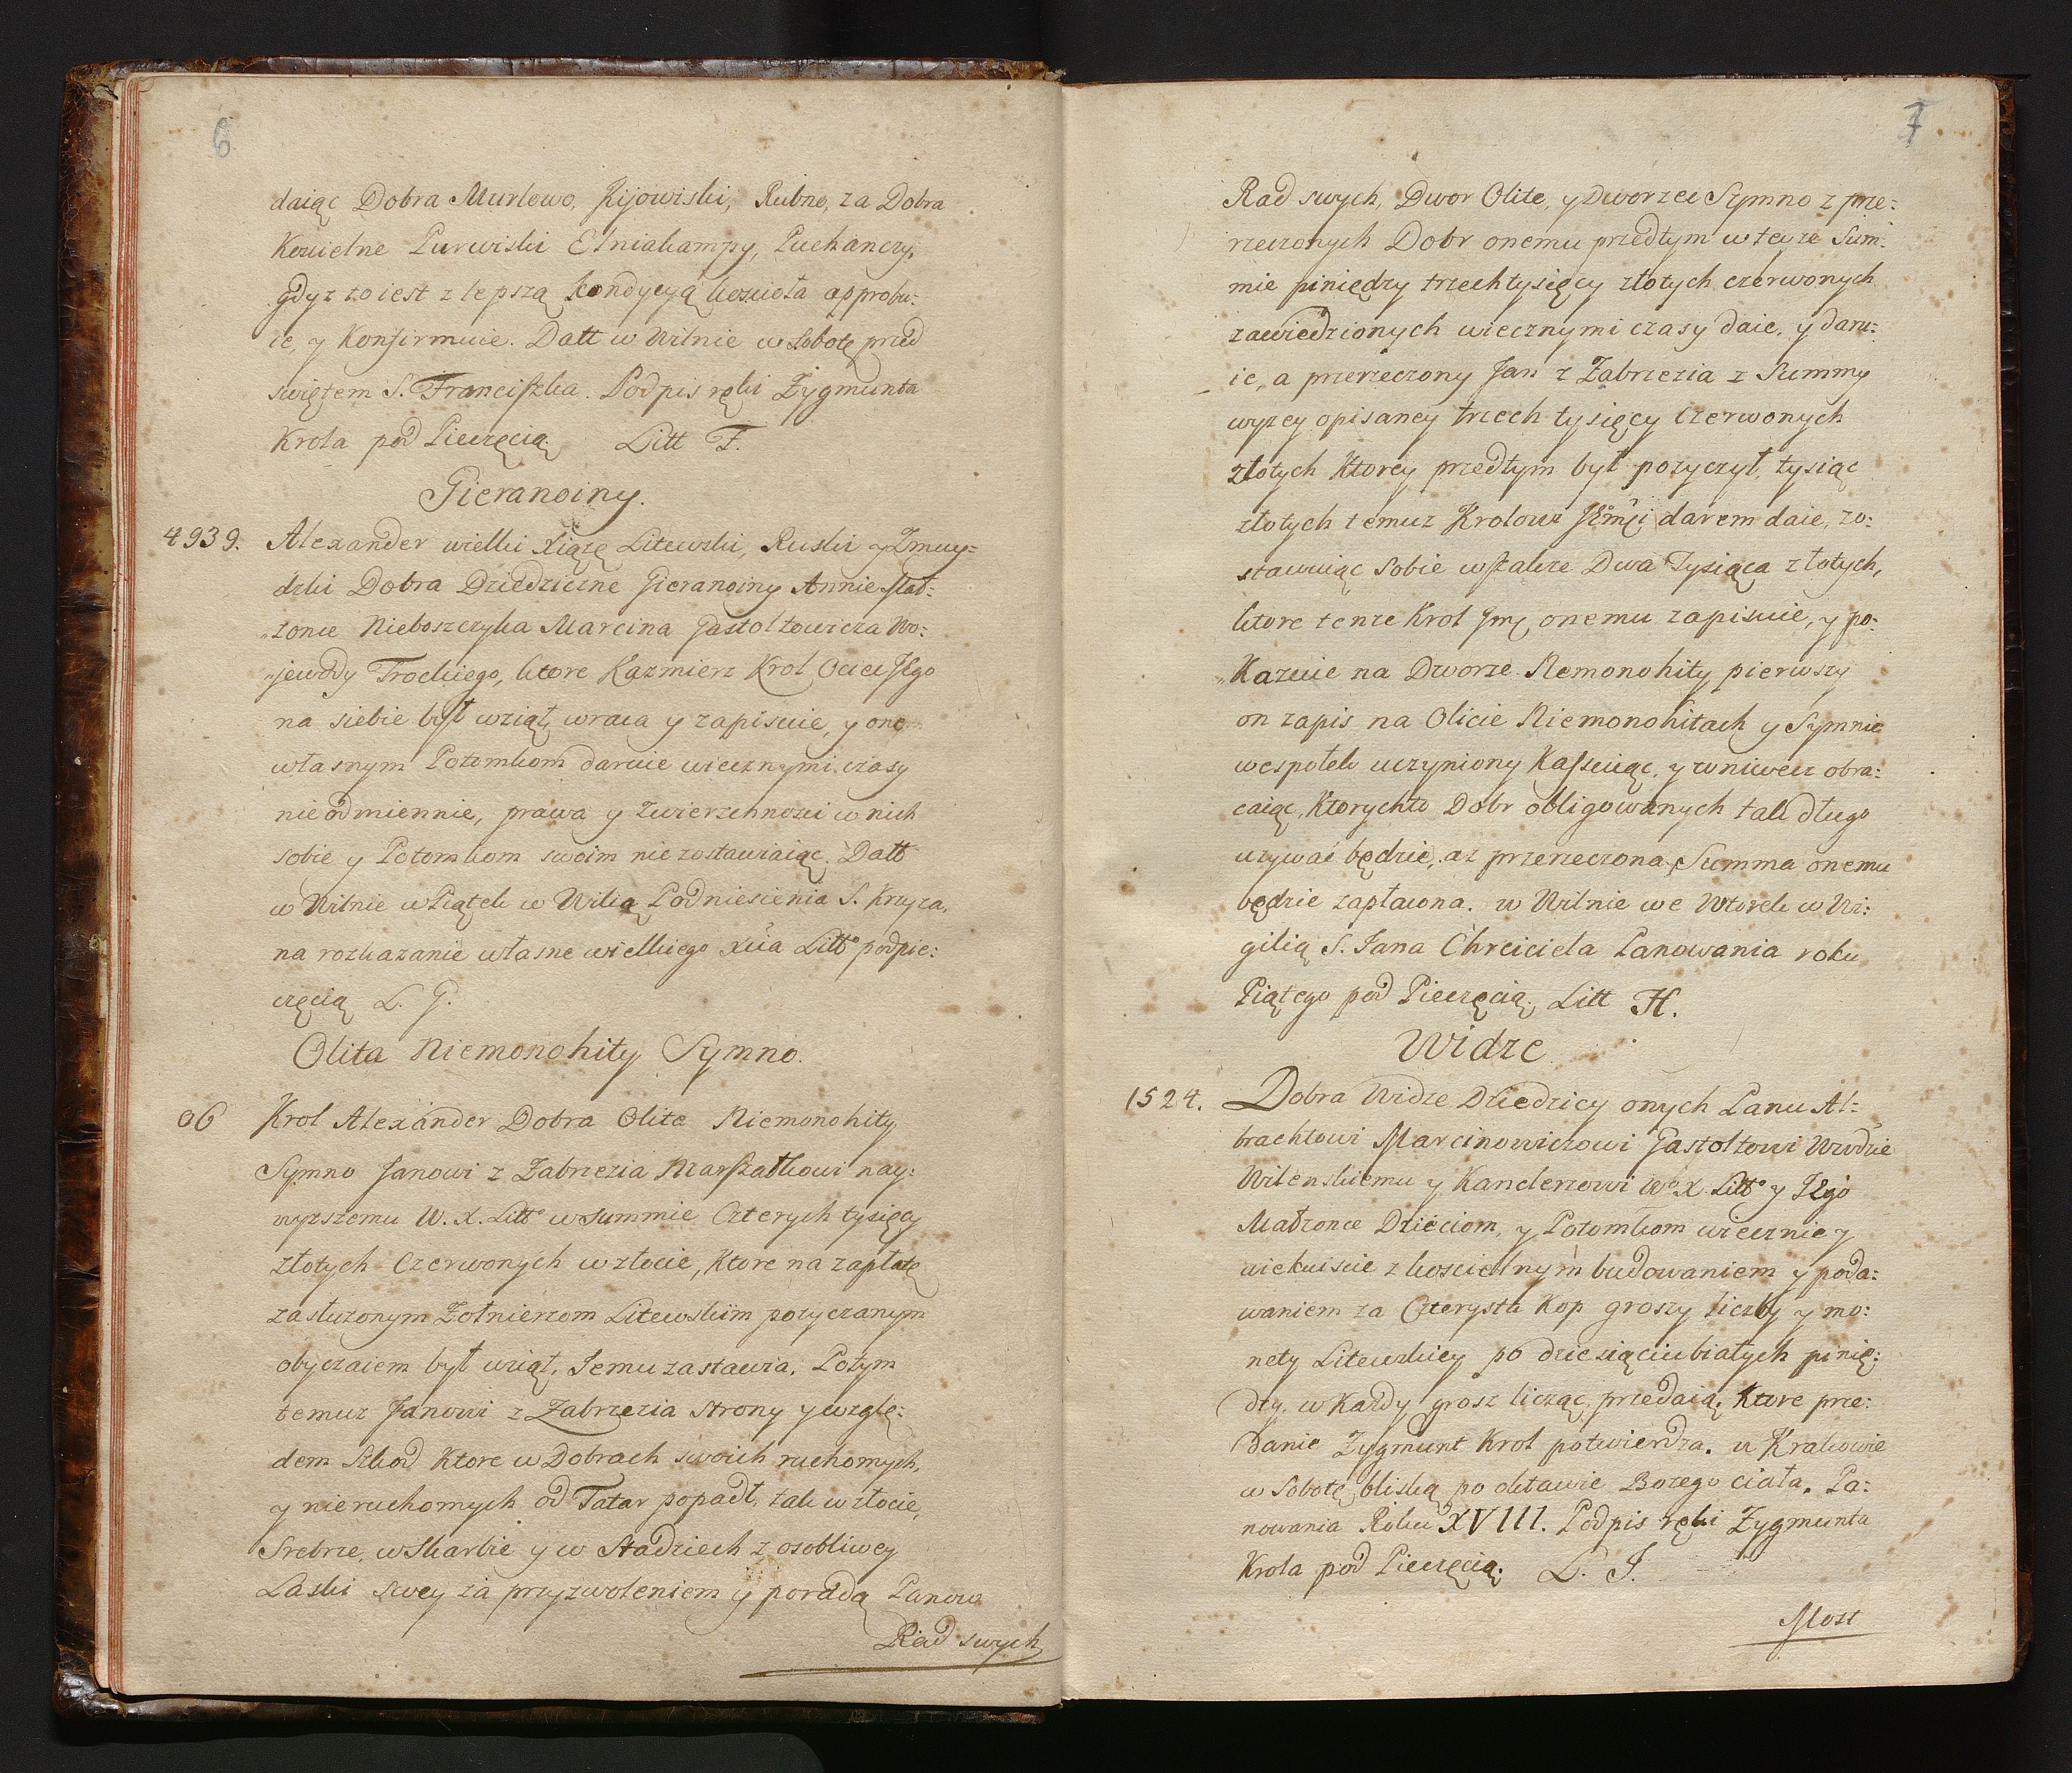 6
daiąc Dobra Murlewo, Kijowiski, Rubno, za Dobra
Koscielne Purwiski Elniakampy, Puchanczy,
gdyz to iest z lepszą kondycyą koscioła approbu:
ie, y Konfirmuie. Datt w Wilnie w Sobotę przed
swiętem S. Franciszka. Podpis ręki Zygmunta
Krola pod Pieczęcią. Litt F.
Gieranoiny.
4939. Alexander wielki Xiązę Litewski, Ruski y Zmuy=
dzki Dobra Dziedziczne Gieranoiny Annie Mał:
zonce Nieboszczyka Marcina Gastoltowicza Wo:
jewody Trockiego, ktore Kazmierz Krol Ociec JEgo
na siebie był wziął, wraca y zapisuie, y one
własnym Potomkom daruie wiecznymi czasy
nieodmiennie, prawa y zwierzchnosci w nich
sobie y Potomkom swoim nie zostawiaiąc. Datt
w Wilnie w Piątek w Wilią Podniesienia S. Krzyza,
na rozkazanie własne wielkiego Xcia Litto podpie:
częcią L. G.
Olita Niemonohity Symno.
06 Krol Alexander Dobra Olite Niemonohity
Symno Janowi z Zabrzezia Marszałkowi nay:
wyzszemu W. X. Litto w summie Czterych tysięcy
złotych Czerwonych w złocie, Ktore na zapłatę
zasłuzonym Zołnierzom Litewskim pozyczanym
obyczaiem był wziął, Jemu zastawia. Potym
temuz Janowi z Zabrzezia strony y wzglę:
dem Szkod Ktore w Dobrach swoich ruchomych,
y nieruchomych od Tatar popadł, tak w złocie,
Srebrze, w Skarbie y w Stadziech z osobliwey
Laski swey za przyzwoleniem y poradą Panow
Rad swych
7
Rad swych, Dwor Olite, y Dworzec Symno z prze:
rzeczonych Dobr onemu przedtym w teyze Sum:
mie piniędzy trzech tysięcy złotych czerwonych
zawiedzionych wiecznymi czasy daie, y daru:
ie, a przerzeczony Jan z Zabrzezia z Summy
wyzey opisaney trzech tysięcy Czerwonych
złotych Ktorey przedtym był pozyczył, tysiąc
złotych temuz Krolowi JKmści darem daie, zo:
stawuiąc sobie wszakze Dwa Tysiąca złotych,
ktore tenze Krol Jmć onemu zapisuie, y po:
Kazuie na Dworze Niemonohity pierwszy
on zapis na Olicie Niemonohitach y Symnie
wespołek uczyniony Kassuiąc, y wniwecz obra:
caiąc, Ktorychto Dobr obligowanych tak długo
uzywać będzie, az przerzeczona Summa onemu
będzie zapłacona. w Wilnie we Wtorek w Wi:
gilią S. Jana Chrciciela Panowania roku
Piątego pod Pieczęcią. Litt H.
Widze
1524. Dobra Widze Dziedzicy onych Panu Al=
brachtowi Marcinowiczowi Gastołtowi Wwdzie
Wilenskiemu y Kanclerzowi Wo X. Litto y JEgo
Małzonce Dzieciom, y Potomkom wiecznie y
wiekuiscie z koscielnym budowaniem y poda:
waniem za Czterysta Kop groszy liczby y mo:
nety Litewskiey po dziesiąciu białych pinię:
dzy, w Kazdy grosz licząc, przedaią, Ktore prze:
danie Zygmunt Krol potwierdza. w Krakowie
w Sobotę bliską po oktawie Bozego ciała. Pa:
nowania Roku XVIII. Podpis ręki Zygmunta
Krola pod Pieczęcią. L. J.
Most